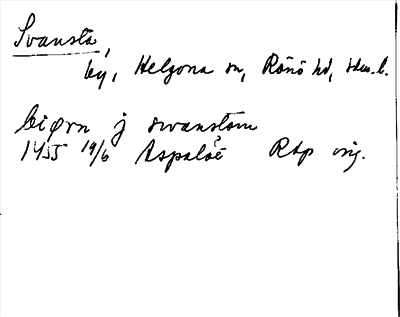 Svansta,
by, Helgona sn, Rönö hd, Sdm. l.
biørn j swanstom
1455 19/6 Aspaløt RAp orig.